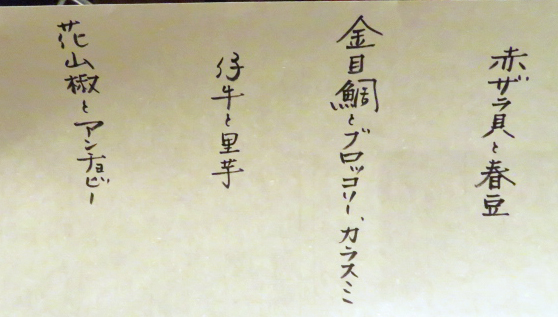 赤ザラ貝と春豆
金目鯛とブロッコリー、カラスミ
仔牛と里芋
花山椒とアンチョビー